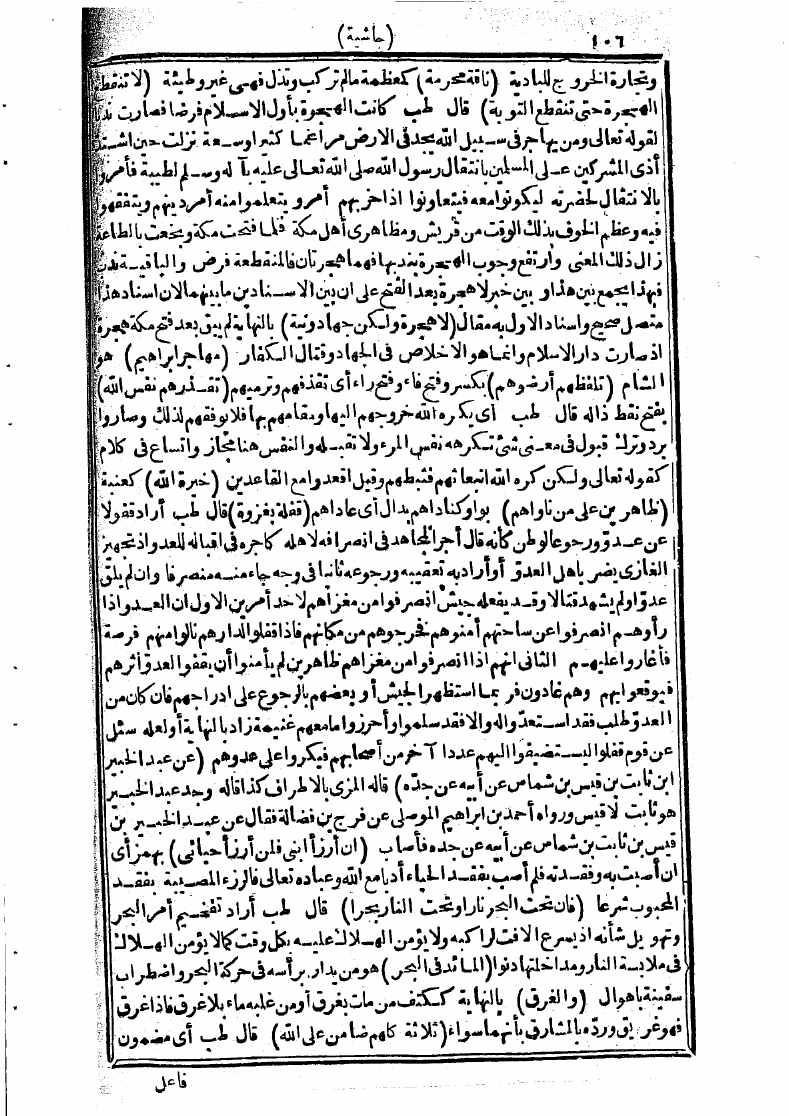 ١٠٦
(حاشية)
وتجارة الخروج للبادية (ناقة محرمة) كمعظمة مالم تركب وتذلل فهى غير وطيئة (لا تنقطع
الهجرة حتى تنقطع التوبة) قال طب كانت الهجرة بأول الاسلام فرضا فصارت ندبا
لقوله تعالى ومن يهاجر فى سبيل الله يجد فى الارض مراغما كثيرا وسعة نزلت حين اشتد
أذى المشركين على المسلمين بانتقال رسول الله صلى الله تعالى عليه بآله وسلم لطيبة فأمروا
بالانتقال لحضرته ليكونوا معه فيتعاونوا اذا حزبهم أمر ويتعلموا منه أمر دينهم ويتفقهوا
فيه وعظم الخوف بذلك الوقت من قريش ومظاهرى أهل مكة فلما فتحت مكة وبخعت بالطاعة
زال ذلك المعنى وارتفع وجوب الهجرة بندبها فهما هجرتان فالمنقطعة فرض والباقية ندب
فبهذا يجمع بين هذا وبين خبر لا هجرة بعد الفتح على ان بين الاسنادين ما بينهما لان اسناد هذا
متصل صحيح واسناد الاول به مقال (لا هجرة ولكن جهاد ونية) بالنهاية لم يبق بعد فتح مكة هجرة
اذ صارت دار الاسلام وانما هو الاخلاص فى الجهاد وقتال الكفار (مهاجر ابراهيم) هو
الشام (تلفظهم أرضوهم) بكسر وفتح فاء وفتح راء أى تقذفهم وترميهم (تقذرهم نفس الله)
بفتح نقط ذاله قال طب أى يكره الله خروجهم اليها ومقامهم بها فلا يوفقهم لذلك وصاروا
برد وترك قبول فى معنى شئ تكرهه نفس المرء ولا تقبله والنفس هنا مجاز واتساع فى كلام
كقوله تعالى ولكن كره الله انبعاثهم فثبطهم وقيل اقعدوا مع القاعدين (خيرة الله) كعنبة
(ظاهرين على من ناواهم) بواو كناداهم بدال أى عاداهم (قفلة بغزوة) قال طب أراد قفولا
عن عدو ورجوعا لوطن كأنه قال أجر المجاهد فى انصرافه لاهله كاجره فى اقباله للعدو اذ تجهيز
الغازى يضر باهل العدو أو أراد به تعقيبه ورجوعه ثانيا فى وجه جاء منه منصرفا وان لم يلق
عدوا ولم يشهد قتالا وقد يفعله جيش انصرفوا من مغزاهم لاحد أمرين الاول ان العدو اذا
رأوهم انصرفوا عن ساحتهم أمنوهم فخرجوهم من مكانهم فاذا قفلوا لدارهم نالوا منهم فرصة
فأغاروا عليهم الثانى انهم اذا انصرفوا من مغزاهم ظاهرين لم يأمنوا أن يقفوا العدو أثرهم
فيوقعوا بهم وهم غادون فربما استظهر الجيش أو بعضهم بالرجوع على ادراجهم فان كان من
العدو طلب فقد استعدوا له والا فقد سلموا وأحرزوا ما معهم غنيمة زاد بالنهاية أو لعله سئل
عن قوم قفلوا ليستضيفوا اليهم عددا آخر من أصحابهم فيكروا على عدوهم (عن عبد الخبير
ابن ثابت بن قيس بن شماس عن أبيه عن جده) قاله المزى بالاطراف كذا قاله وجد عبد الخبير
هو ثابت لا قيس ورواه أحمد بن ابراهيم الموصلى عن فرج بن فضالة فقال عن عبد الخبير بن
قيس بن ثابت بن شماس عن أبيه عن جده فأصاب (ان أرزأ ابنى فلن أرزأ حيائى) بهمز أى
ان أصبت به وفقدته فلم أصب بفقد الحياء أدبا مع الله وعباده تعالى فالرزء المصيبة بفقد
المحبوب شرعا (فان تحت البحر نارا وتحت النار بحرا) قال طب أراد تفخيم أمر البحر
وتهويل شأنه اذ يسرع الافت لراكبه ولا يؤمن الهلاك عليه بكل وقت كما لا يؤمن الهلاك
فى ملابسة النار ومداخلتها دنوا (المائد فى البحر) هو من يدار برأسه فى حركة البحر واضطراب
سفينة باهوال (والغرق) بالنهاية ككتف من مات بغرق أو من غلبه ماء بلا غرق فاذا غرق
فهو غريق ورده بالمشارق بأنهما سواء (ثلاثة كلهم ضامن على الله) قال طب أى مضمون
فاعل